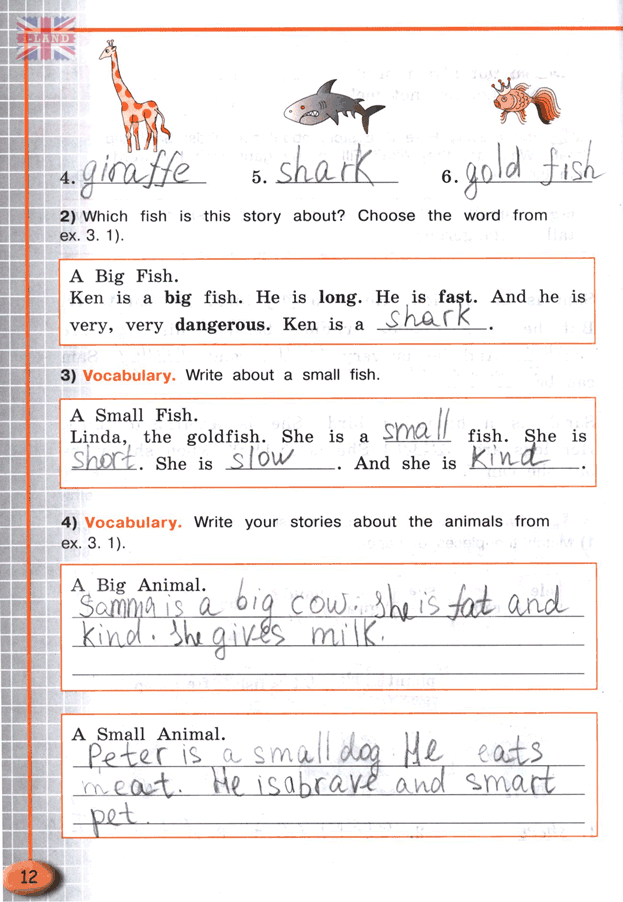 I-LAND
4. giraffe 5. shark 6. gold fish
2) Which fish is this story about? Choose the word from
ex. 3. 1).
A Big Fish.
Ken is a big fish. He is long. He is fast. And he is
very, very dangerous. Ken is a shark.
3) Vocabulary. Write about a small fish.
A Small Fish.
Linda, the goldfish. She is a small fish. She is
short. She is slow. And she is kind.
4) Vocabulary. Write your stories about the animals from
ex. 3. 1).
A Big Animal.
Samma is a big cow. She is fat and
kind. She gives milk.
A Small Animal.
Peter is a small dog. He eats
meat. He is a brave and smart
pet.
12